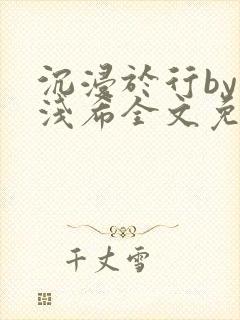 沉漫於行by
浅希全文免
千丈雪